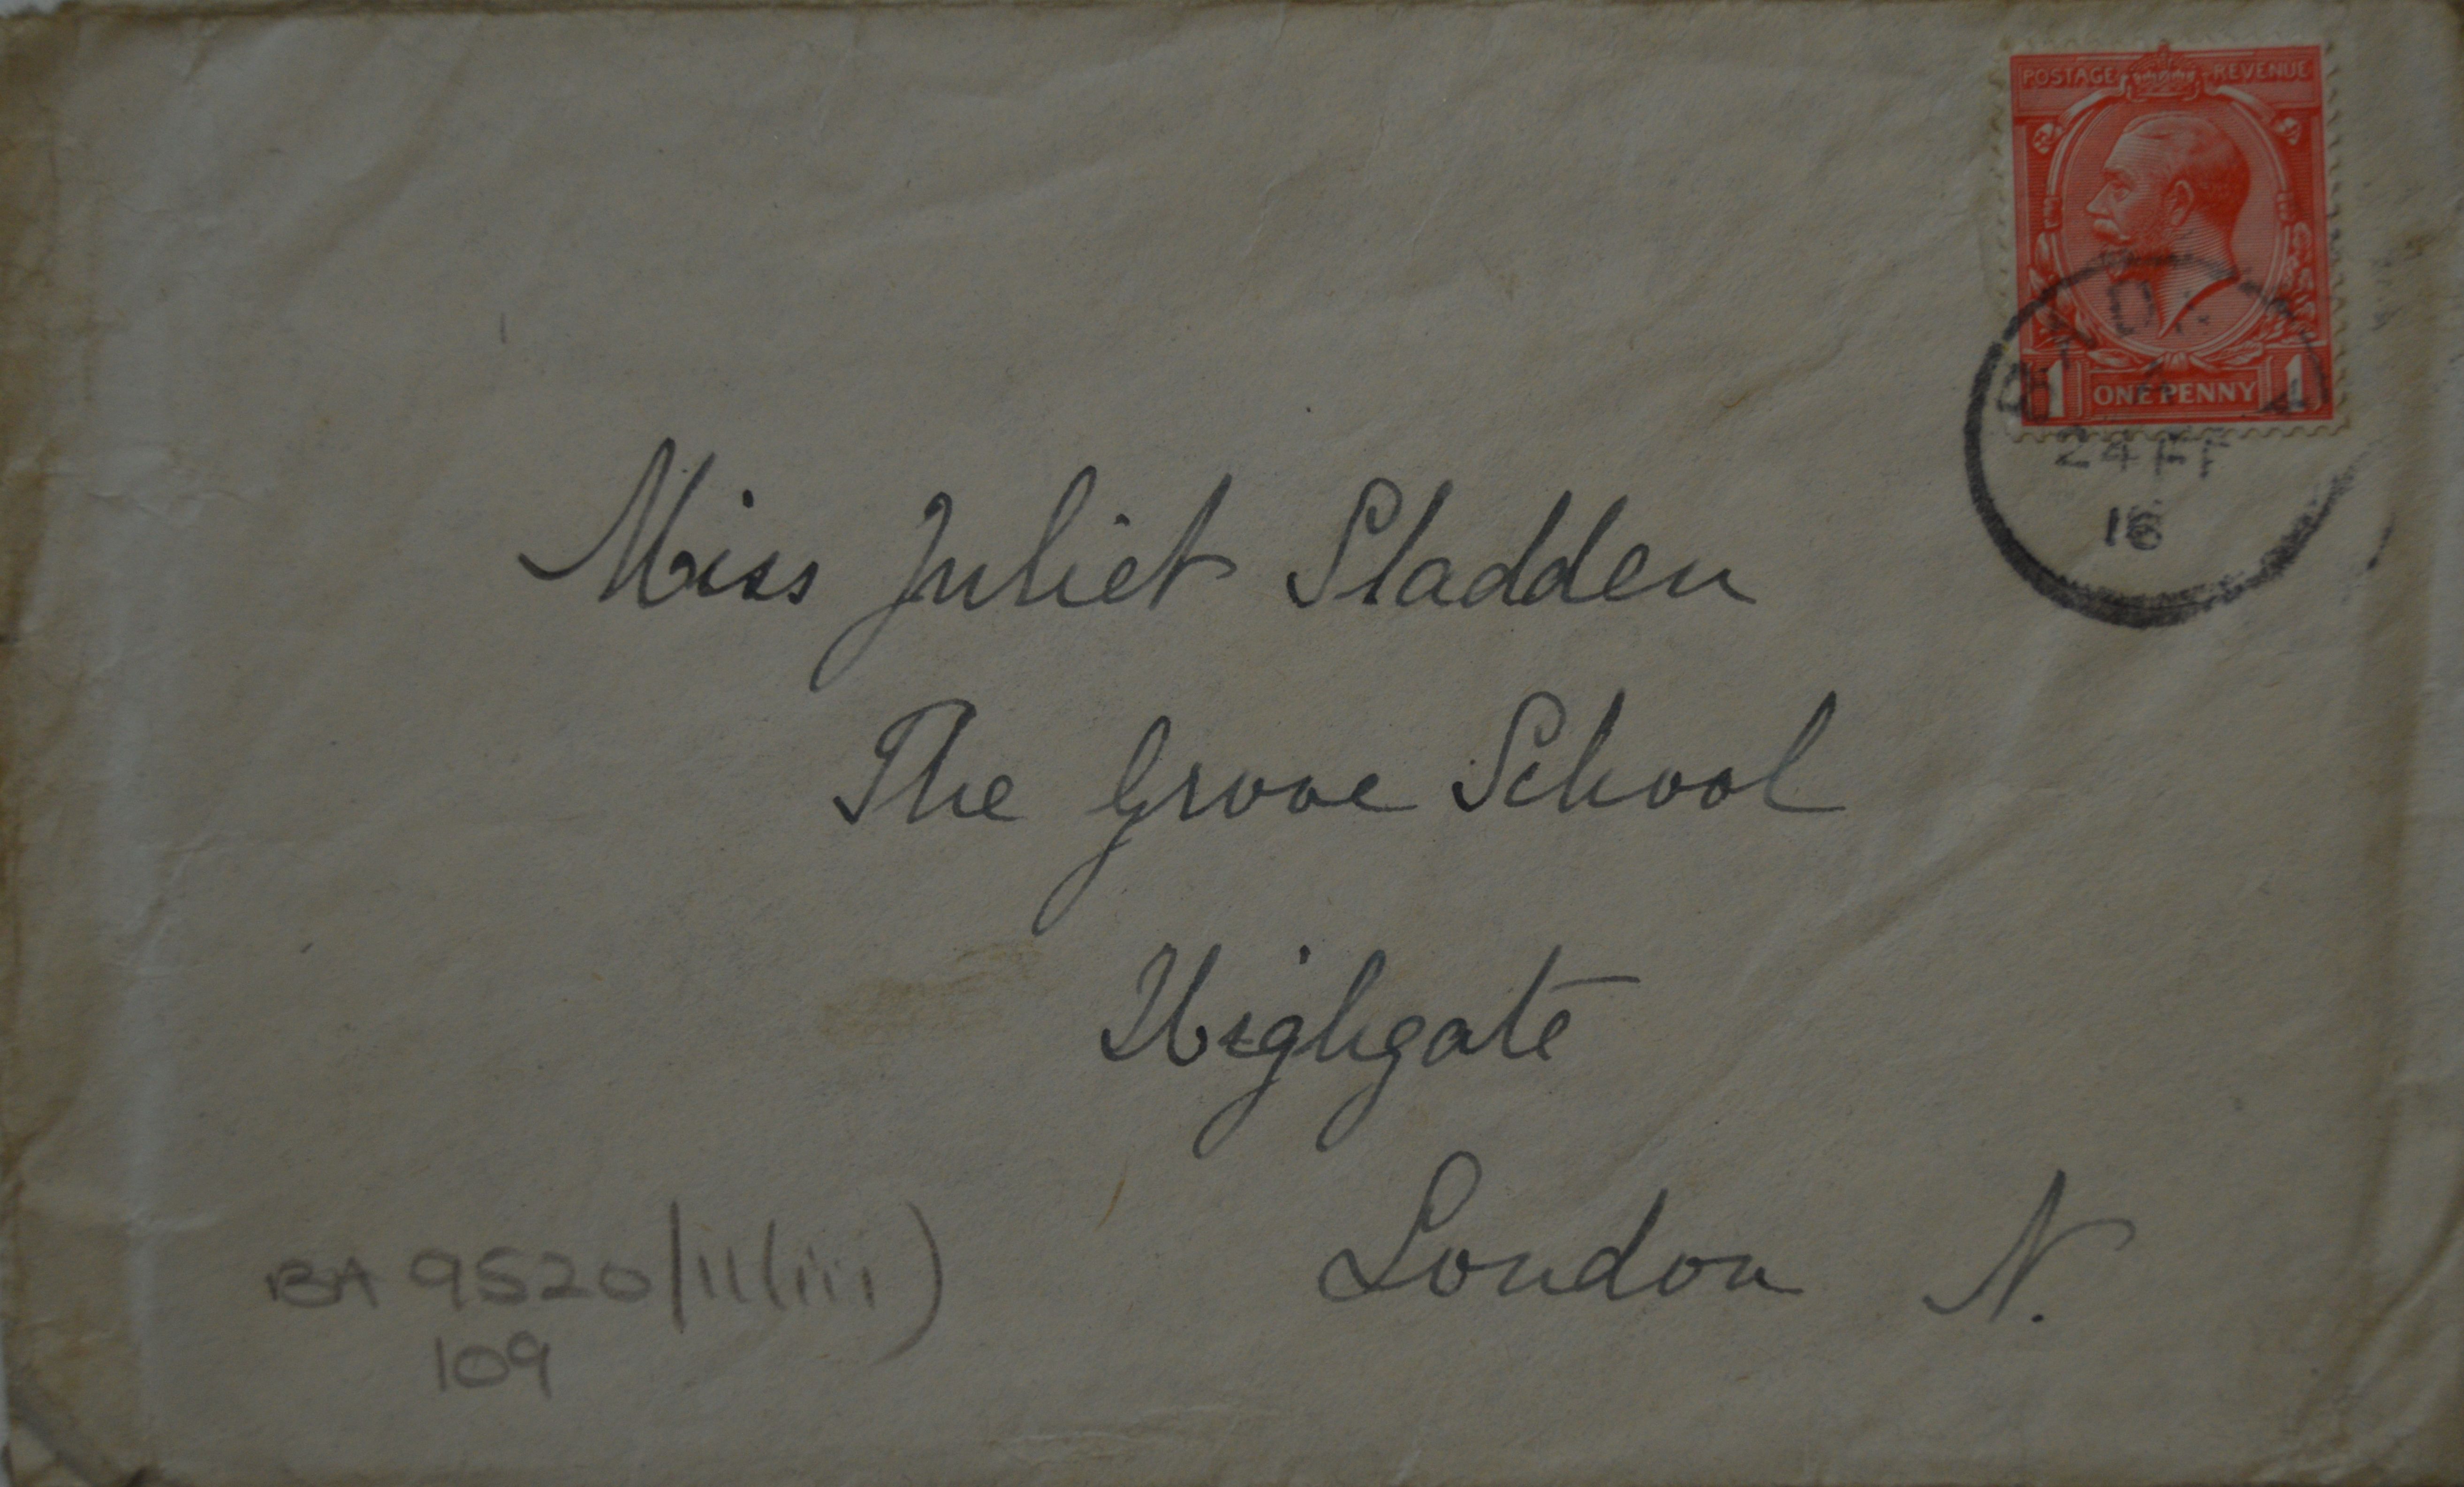 POSTAGE REVENUE
ONE PENNY
1 1
24
16
Miss Juliet Sladden
The Grove School
Highgate
London N.
BA 9520/11(iii)
109